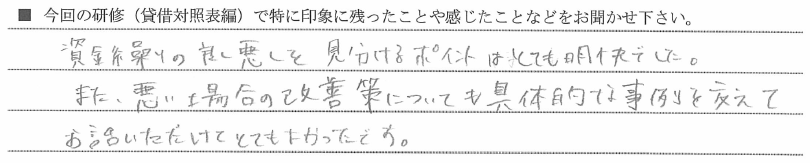 ■ 今回の研修（貸借対照表編）で特に印象に残ったことや感じたことなどをお聞かせ下さい。
資金繰りの良し悪しを見分けるポイントはとても明快でした。
また、悪い場合の改善策についても具体的な事例を交えて
お話いただけてとてもよかったです。